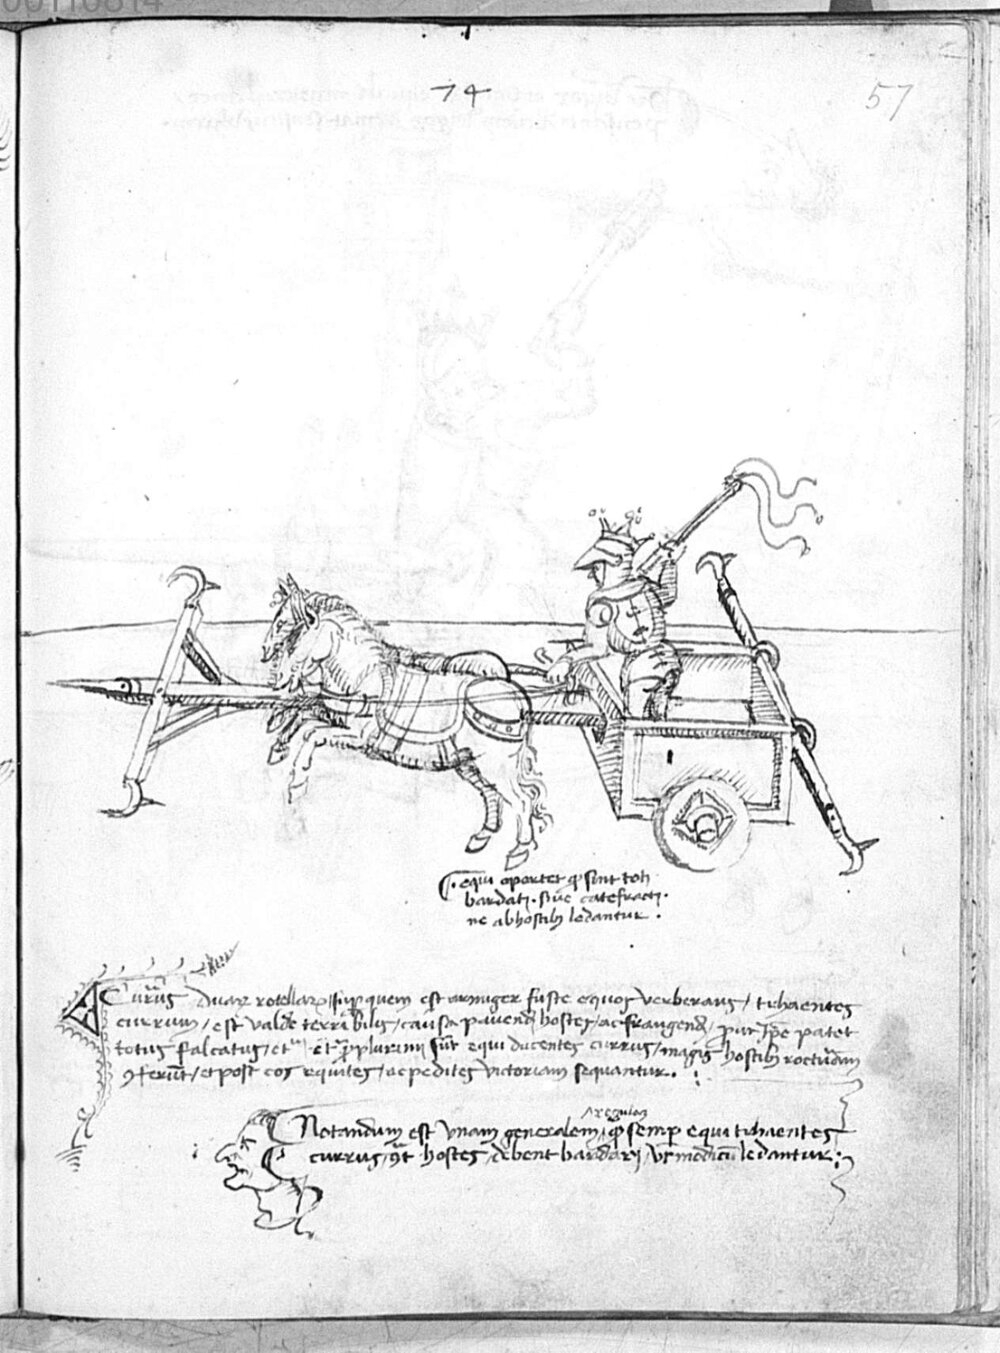 00110814
74
57
equi oportet q sint toti
bardati. sive catefracti.
ne ab hostib ledantur.
Currus duar rotellar, sup quem est armiger fuste equos verberans / trhaentes
currum / est valde terribilis / causa pavendi hostes, ac frangendi, put hic patet
totus falcatus / et plurimi sut equi ducentes currus / magis hostib
ferut / et post eos equites / ac pedites victoriam sequantur.
regulam
Notandum est unam generalem, q semp equi trhaentes
currus, hostes, debent bardari, ledantur